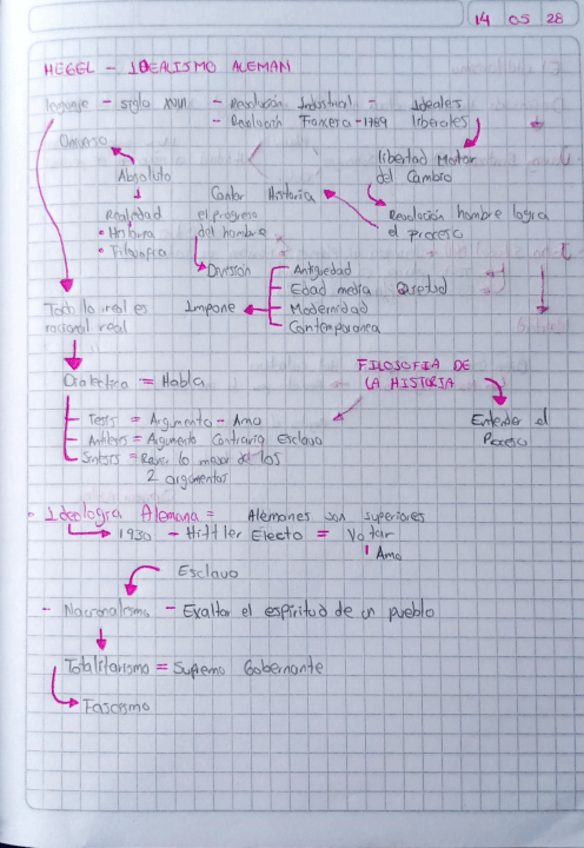 14 05 28
HEGEL - IDEALISMO ALEMAN
lenguaje - siglo XVIII - Revolución Industrial - Ideales
- Revolución Francesa - 1789 liberales
Universo
libertad Motor
del Cambio
Absoluto
Contar Historia
Realidad el progreso
• Historia del hombre
• Filosofia
Revolución hombre logra
el proceso
División
Antiguedad
Edad media Quietud
Modernidad
Contemporanea
Impone
Todo lo real es
racional real
Dialectica = Habla
FILOSOFIA DE
LA HISTORIA
Entender el
Proceso
Tesis = Argumento - Amo
Antitesis = Argumento Contrario Esclavo
Sintesis = lo mejor de los
2 argumentos
- Ideologia Alemana = Alemanes son superiores
1930 - Hittler Electo = Votar
Amo
Esclavo
- Nacionalismo - Exaltar el espiritud de un pueblo
Totalitarismo = Supremo Gobernante
Fascismo